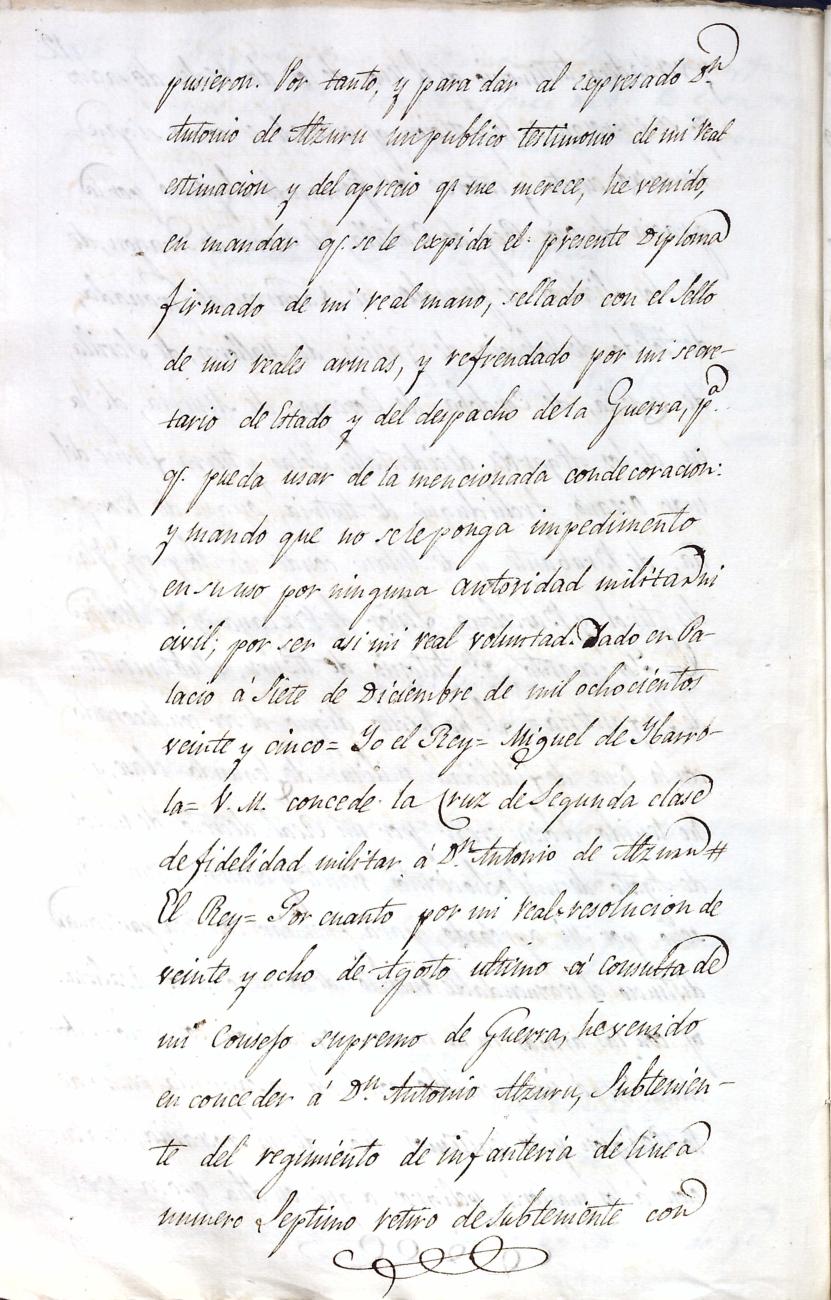 pusieron. Por tanto, y para dar al expresado Dn
Antonio de Alzuru un publico testimonio de mi real
estimacion y del aprecio qe me merece, he venido,
en mandar qe se le expida el presente Diploma
firmado de mi real mano, sellado con el Sello
de mis reales armas, y refrendado por mi secre-
tario de Estado y del despacho de la Guerra, pa.
qe. pueda usar de la mencionada condecoracion:
y mando que no se le ponga impedimento
en su uso por ninguna autoridad militar ni
civil; por ser asi mi real voluntad. Dado en Pa-
lacio á Siete de Diciembre de mil ochocientos
veinte y cinco= Yo el Rey= Miguel de Ybarro-
la= V. M. concede la Cruz de Segunda clase
de fidelidad militar á Dn. Antonio de Alzuru #
El Rey= Por cuanto por mi real resolucion de
veinte y ocho de Agosto ultimo á consulta de
mi Consejo supremo de Guerra, he venido
en conceder á Dn Antonio Alzuru, Subtenien-
te del regimiento de infanteria de linea
numero Septimo retiro de Subteniente con